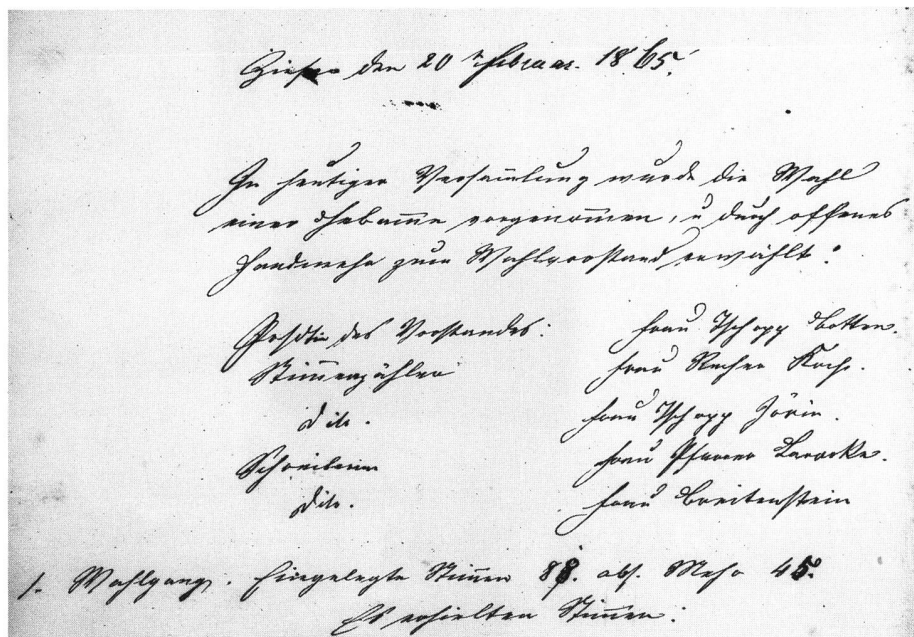 Ziefen den 20ⁿ Februar. 1865.
In heutiger Versammlung wurde die Wahl
einer Hebamme vorgenommen, u durch offenes
Handmehr zum Wahlvorstand erwählt:
des Vorstandes: Frau Tschopp
Stimmenzähler Frau Recher Koch.
dito. Frau Tschopp Zörin.
Schreiberin Frau Pfarrer Larocke.
dito. Frau Breitenstein
1. Wahlgang. Eingelegte Stimmen 88. abs. Mehr 45.
Es erhielten Stimmen: